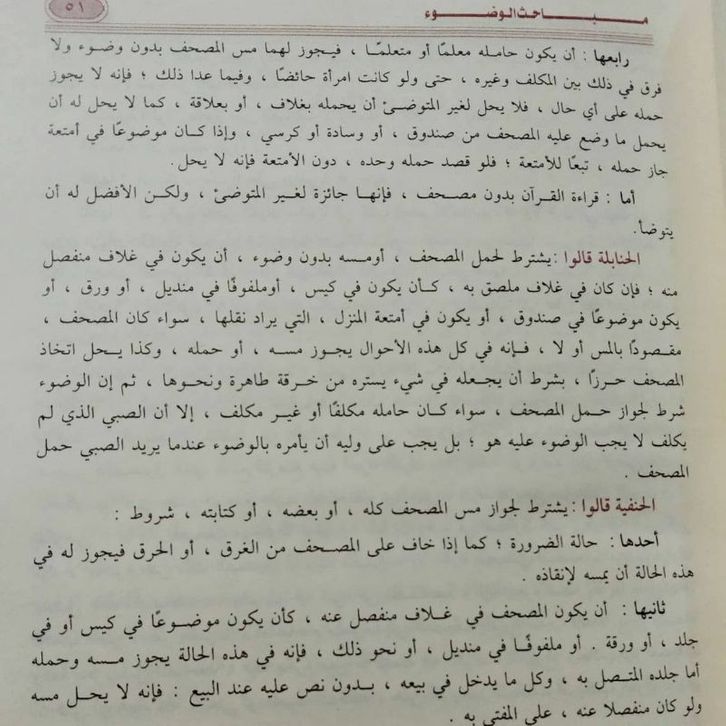 مباحث الوضوء
٥١
رابعها : أن يكون حامله معلمًا أو متعلمًا ، فيجوز لهما مس المصحف بدون وضوء ولا
فرق في ذلك بين المكلف وغيره ، حتى ولو كانت امرأة حائضًا ، وفيما عدا ذلك ؛ فإنه لا يجوز
حمله على أي حال ، فلا يحل لغير المتوضئ أن يحمله بغلاف ، أو بعلاقة ، كما لا يحل له أن
يحمل ما وضع عليه المصحف من صندوق ، أو وسادة أو كرسي ، وإذا كان موضوعًا في أمتعة
جاز حمله ، تبعًا للأمتعة ؛ فلو قصد حمله وحده ، دون الأمتعة فإنه لا يحل .
أما : قراءة القرآن بدون مصحف ، فإنها جائزة لغير المتوضئ ، ولكن الأفضل له أن
يتوضأ.
الحنابلة قالوا : يشترط لحمل المصحف ، أومسه بدون وضوء ، أن يكون في غلاف منفصل
منه ؛ فإن كان في غلاف ملصق به ، كأن يكون في كيس ، أوملفوفًا في منديل ، أو ورق ، أو
يكون موضوعًا في صندوق ، أو يكون في أمتعة المنزل ، التي يراد نقلها ، سواء كان المصحف ،
مقصودًا بالمس أو لا ، فإنه في كل هذه الأحوال يجوز مسه ، أو حمله ، وكذا يحل اتخاذ
المصحف حرزًا ، بشرط أن يجعله في شيء يستره من خرقة طاهرة ونحوها ، ثم إن الوضوء
شرط لجواز حمل المصحف ، سواء كان حامله مكلفًا أو غير مكلف ، إلا أن الصبي الذي لم
يكلف لا يجب الوضوء عليه هو ؛ بل يجب على وليه أن يأمره بالوضوء عندما يريد الصبي حمل
المصحف .
الحنفية قالوا : يشترط لجواز مس المصحف كله ، أو بعضه ، أو كتابته ، شروط :
أحدها : حالة الضرورة ؛ كما إذا خاف على المصحف من الغرق ، أو الحرق فيجوز له في
هذه الحالة أن يمسه لإنقاذه .
ثانيها : أن يكون المصحف في غلاف منفصل عنه ، كأن يكون موضوعًا في كيس أو في
جلد ، أو ورقة . أو ملفوفًا في منديل ، أو نحو ذلك ، فإنه في هذه الحالة يجوز مسه وحمله
أما جلده المتصل به ، وكل ما يدخل في بيعه ، بدون نص عليه عند البيع : فإنه لا يحل مسه
ولو كان منفصلا عنه ، على المفتي به .